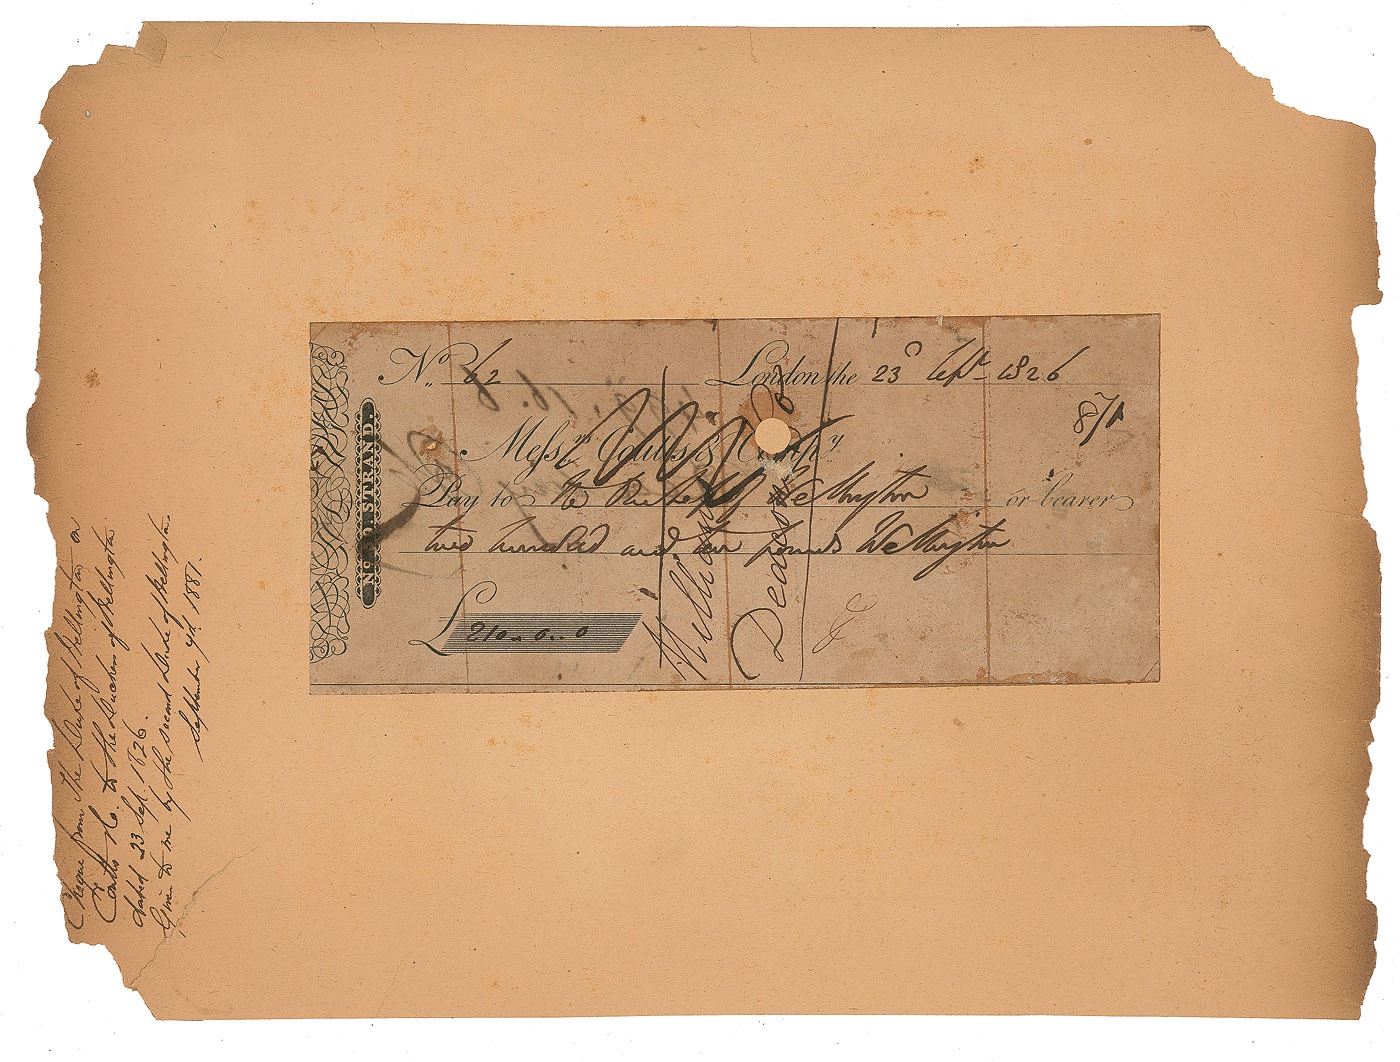 Nº 62 London the 23ᵈ Sepᵗ 1826
871
Messʳˢ Coutts & Compʸ
Pay to the Duchess of Wellington or bearer
two hundred and ten pounds Wellington
£ 210 . 0 . 0
No. 59. STRAND.
Cheque from The Duke of Wellington on
Coutts & Co. to the Duchess of Wellington
dated 23 Sep. 1826.
Given to me by the second Duke of Wellington
September 4th 1881.